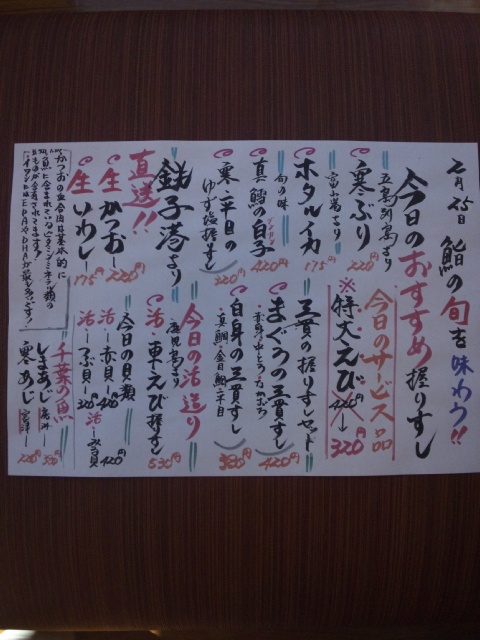 二月25日
鮨の旬を味わう!!
今日のおすすめ握りすし
五島列島より
寒ぶり 220円
富山湾より
ホタルイカ 175円
旬の味
真鱈の白子 420円
寒平目の
ゆず塩握すし 320円
銚子港より
直送!!
生かつお 220円
生いわし 175円
かつおの血合は基本的に
今日のサービス品
※特大えび 420円→320円
三貫の握りすしセット
まぐろの三貫すし 420円
赤身
白身の三貫すし 380円
真鯛・金目鯛・平目
今日の活造り
鹿児島より
活車えび握すし 530円
今日の貝類
活赤貝 420円
活つぶ貝 320円
活みる貝 420円
千葉の魚
しまあじ
寒あじ 220円